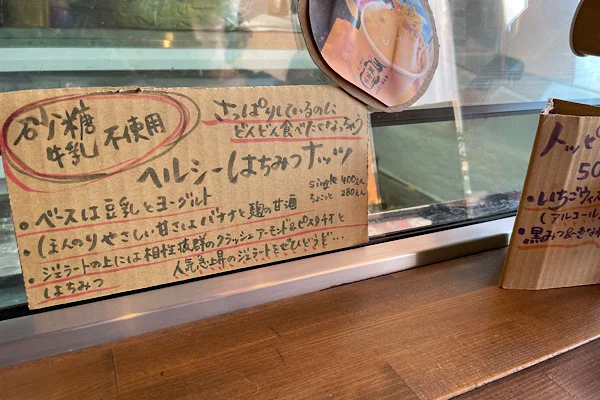 砂糖
牛乳 不使用
さっぱりしているのに
どんどん食べたくなっちゃう
ヘルシーはちみつナッツ
single 400えん
ちょこっと 280えん
・ベースは豆乳とヨーグルト
・ほんのりやさしい甘さはバナナと麹の甘酒
・ジェラートの上には相性抜群のクラッシュアーモンド&ピスタチオと
はちみつ
人気急上昇のジェラートをぜひどうぞ…
トッピ
50
・いちごウィス
(アルコール
・黒みつ&きなれ